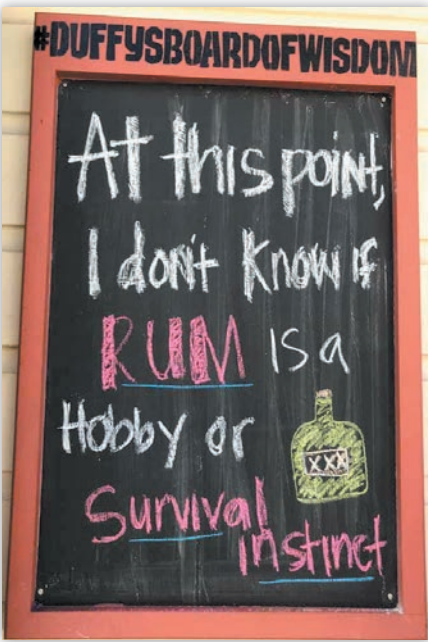 #DUFFYSBOARDOFWISDOM
At this point,
I don't Know if
RUM is a
Hobby or
XXX
Survival
instinct